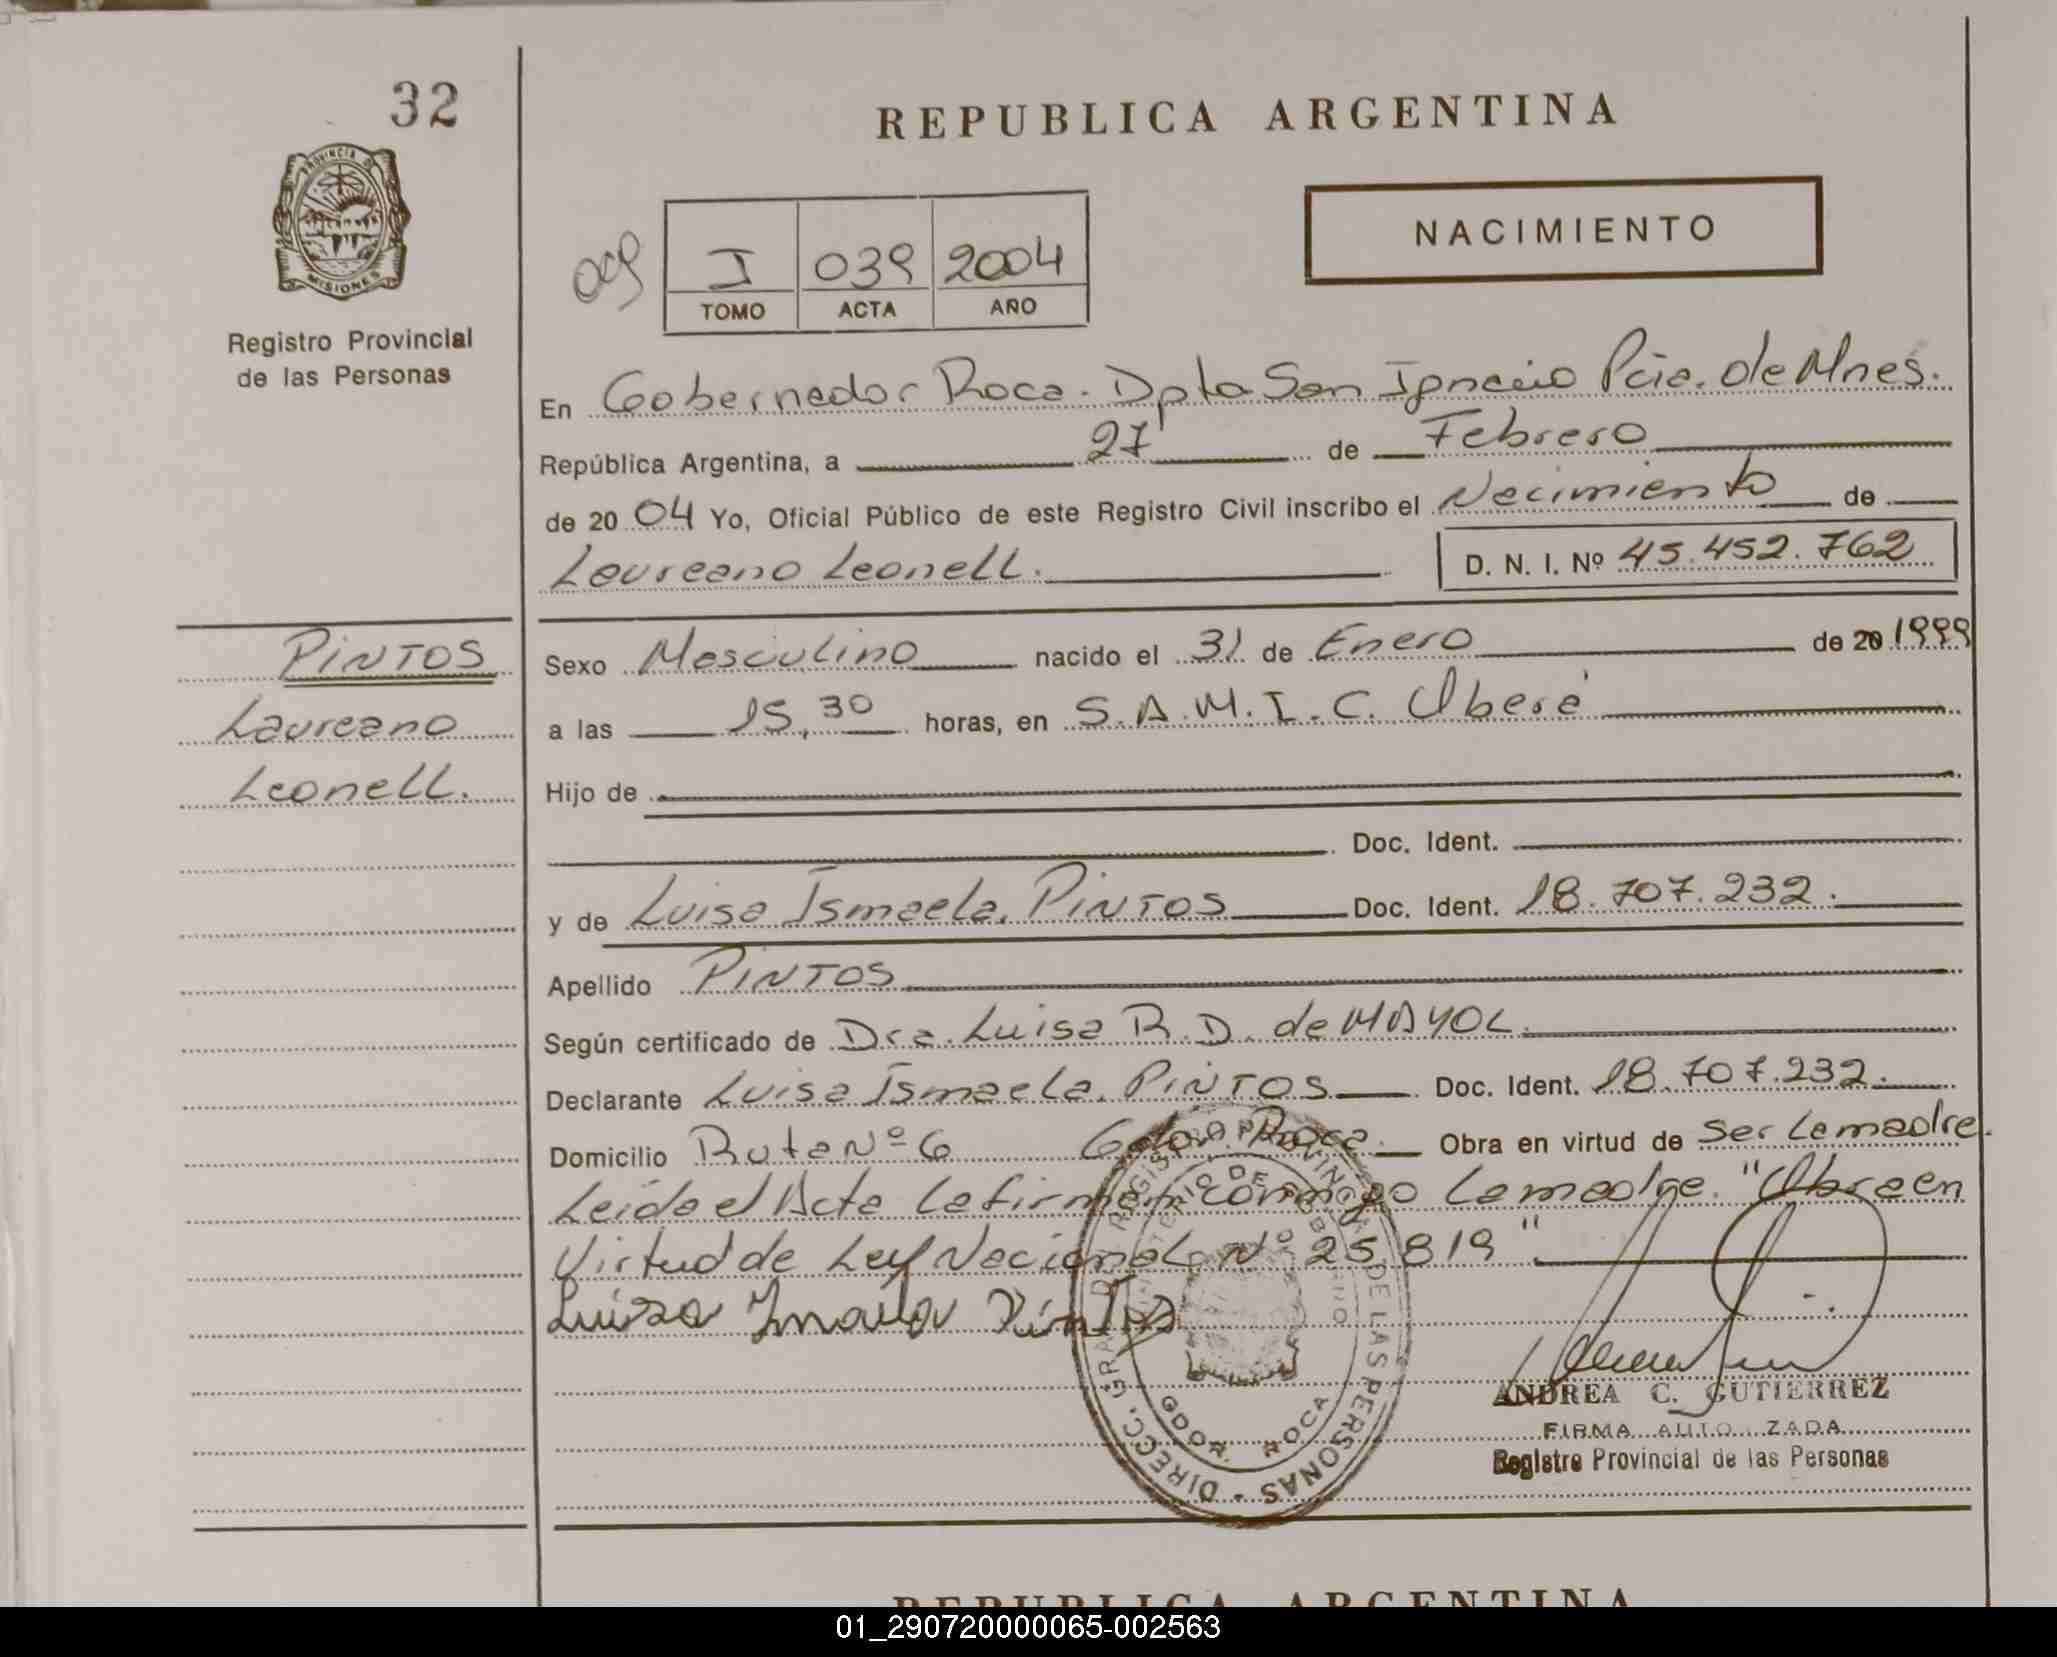 32
REPUBLICA ARGENTINA
PROVINCIA DE
MISIONES
NACIMIENTO
009
I 039 2004
TOMO ACTA AÑO
Registro Provincial
de las Personas
En Gobernador Roca. Dpto San Ignacio Pcia. de Mnes.
República Argentina, a 27 de Febrero
de 20 04 Yo, Oficial Público de este Registro Civil inscribo el Nacimiento de
Laureano Leonell. D. N. I. Nº 45.452.762
PINTOS
Laureano
Leonell.
Sexo Masculino nacido el 31 de Enero de 20 1999
a las 15,30 horas, en S.A.M.I.C. Oberá
Hijo de
Doc. Ident.
y de Luisa Ismaela. PINTOS Doc. Ident. 18.707.232.
Apellido PINTOS
Según certificado de Dra. Luisa R.D. de MAYOL.
Declarante Luisa Ismaela. PINTOS Doc. Ident. 18.707.232.
Domicilio Ruta Nº 6 Gdor. Roca. Obra en virtud de Ser la madre.
Leída el Acta la firman conmigo la madre. "Obra en
Virtud de Ley Nacional Nº 25.819"
Luisa Pintos
DIRECC. GRAL. DE REGISTRO PROVINCIAL DE LAS PERSONAS
MINISTERIO DE GOBIERNO
GDOR. ROCA
ANDREA C. GUTIERREZ
FIRMA AUTO ZADA
Registro Provincial de las Personas
REPUBLICA ARGENTINA
01_290720000065-002563